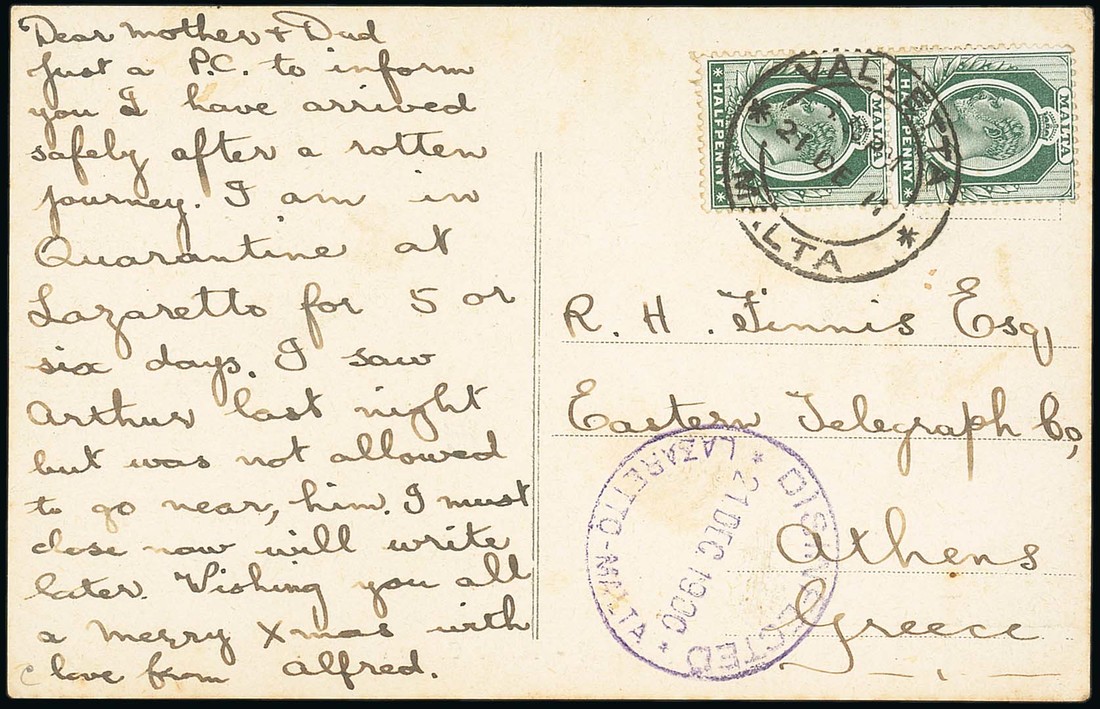 Dear Mother & Dad
Just a P.C. to inform
you I have arrived
safely after a rotten
journey. I am in
Quarantine at
Lazaretto for 5 or
six days. I saw
Arthur last night
but was not allowed
to go near, him. I must
close now will write
later. Wishing you all
a merry Xmas with
love from Alfred.
MALTA
HALFPENNY
MALTA
HALFPENNY
VALLETTA
21 DE 11
MALTA
R. H. Finnis Esq
Eastern Telegraph Co,
Athens
Greece
DISINFECTED
21 DEC 1900
LAZARETTO-MALTA